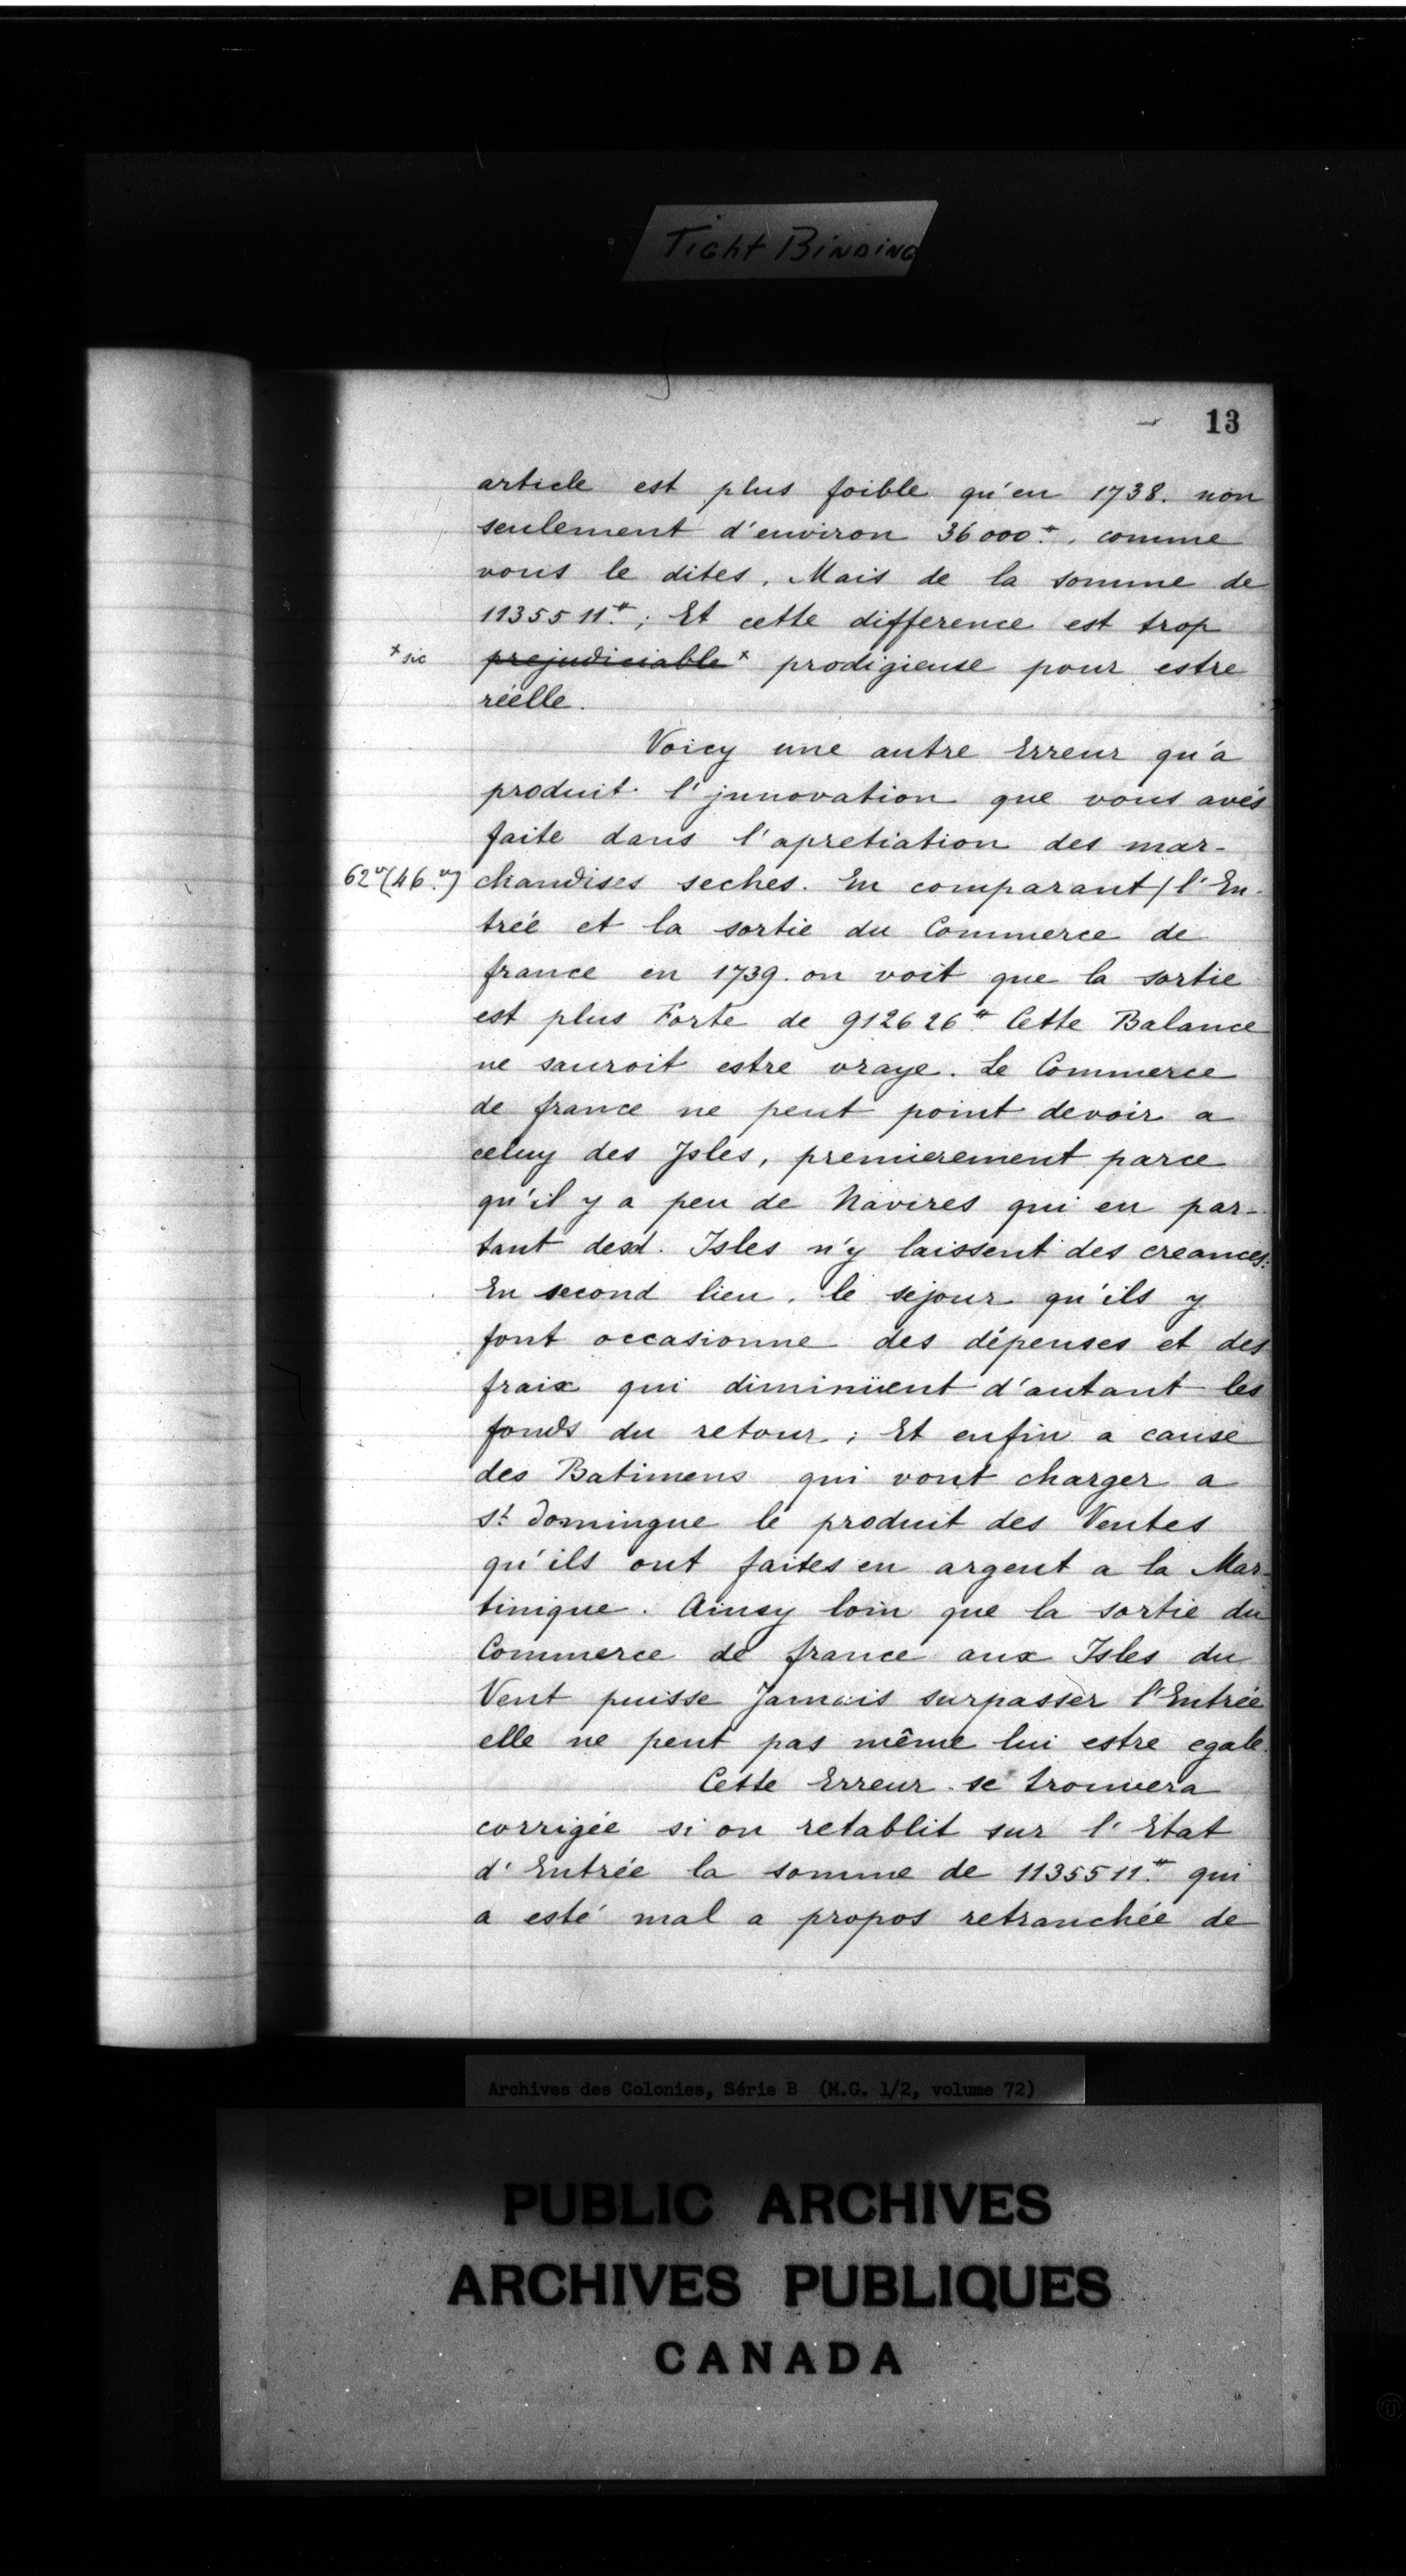 Tight Binding
13
article est plus foible qu'en 1738. non
seulement d'environ 36000.#, comme
vous le dites, Mais de la somme de
1135511.#; Et cette difference est trop
x sic prejudiciable x prodigieuse pour estre
réelle.
Voicy une autre Erreur qu'a
produit l'jnnovation que vous avés
faite dans l'apretiation des mar-
62vo(46.vo) chandises seches. En comparant/l'En-
trée et la sortie du Commerce de
france en 1739. on voit que la sortie
est plus Forte de 912626.# Cette Balance
ne sauroit estre vraye. Le Commerce
de france ne peut point devoir a
celuy des Jsles, premierement parce
qu'il y a peu de Navires qui en par-
tant desd. Isles n'y laissent des creances:
En second lieu, le sejour qu'ils y
font occasionne des dépenses et des
fraix qui diminüent d'autant les
fonds du retour; Et enfin a cause
des Batimens qui vont charger a
St. Domingue le produit des Ventes
qu'ils ont faites en argent a la Mar-
tinique. Ainsy loin que la sortie du
Commerce de france aux Isles du
Vent puisse Jamais surpasser l'Entrée
elle ne peut pas même lui estre egale.
Cette Erreur se trouvera
corrigée si on retablit sur l'Etat
d'Entrée la somme de 1135511.# qui
a esté mal a propos retranchée de
Archives des Colonies, Série B (M.G. 1/2, volume 72)
PUBLIC ARCHIVES
ARCHIVES PUBLIQUES
CANADA